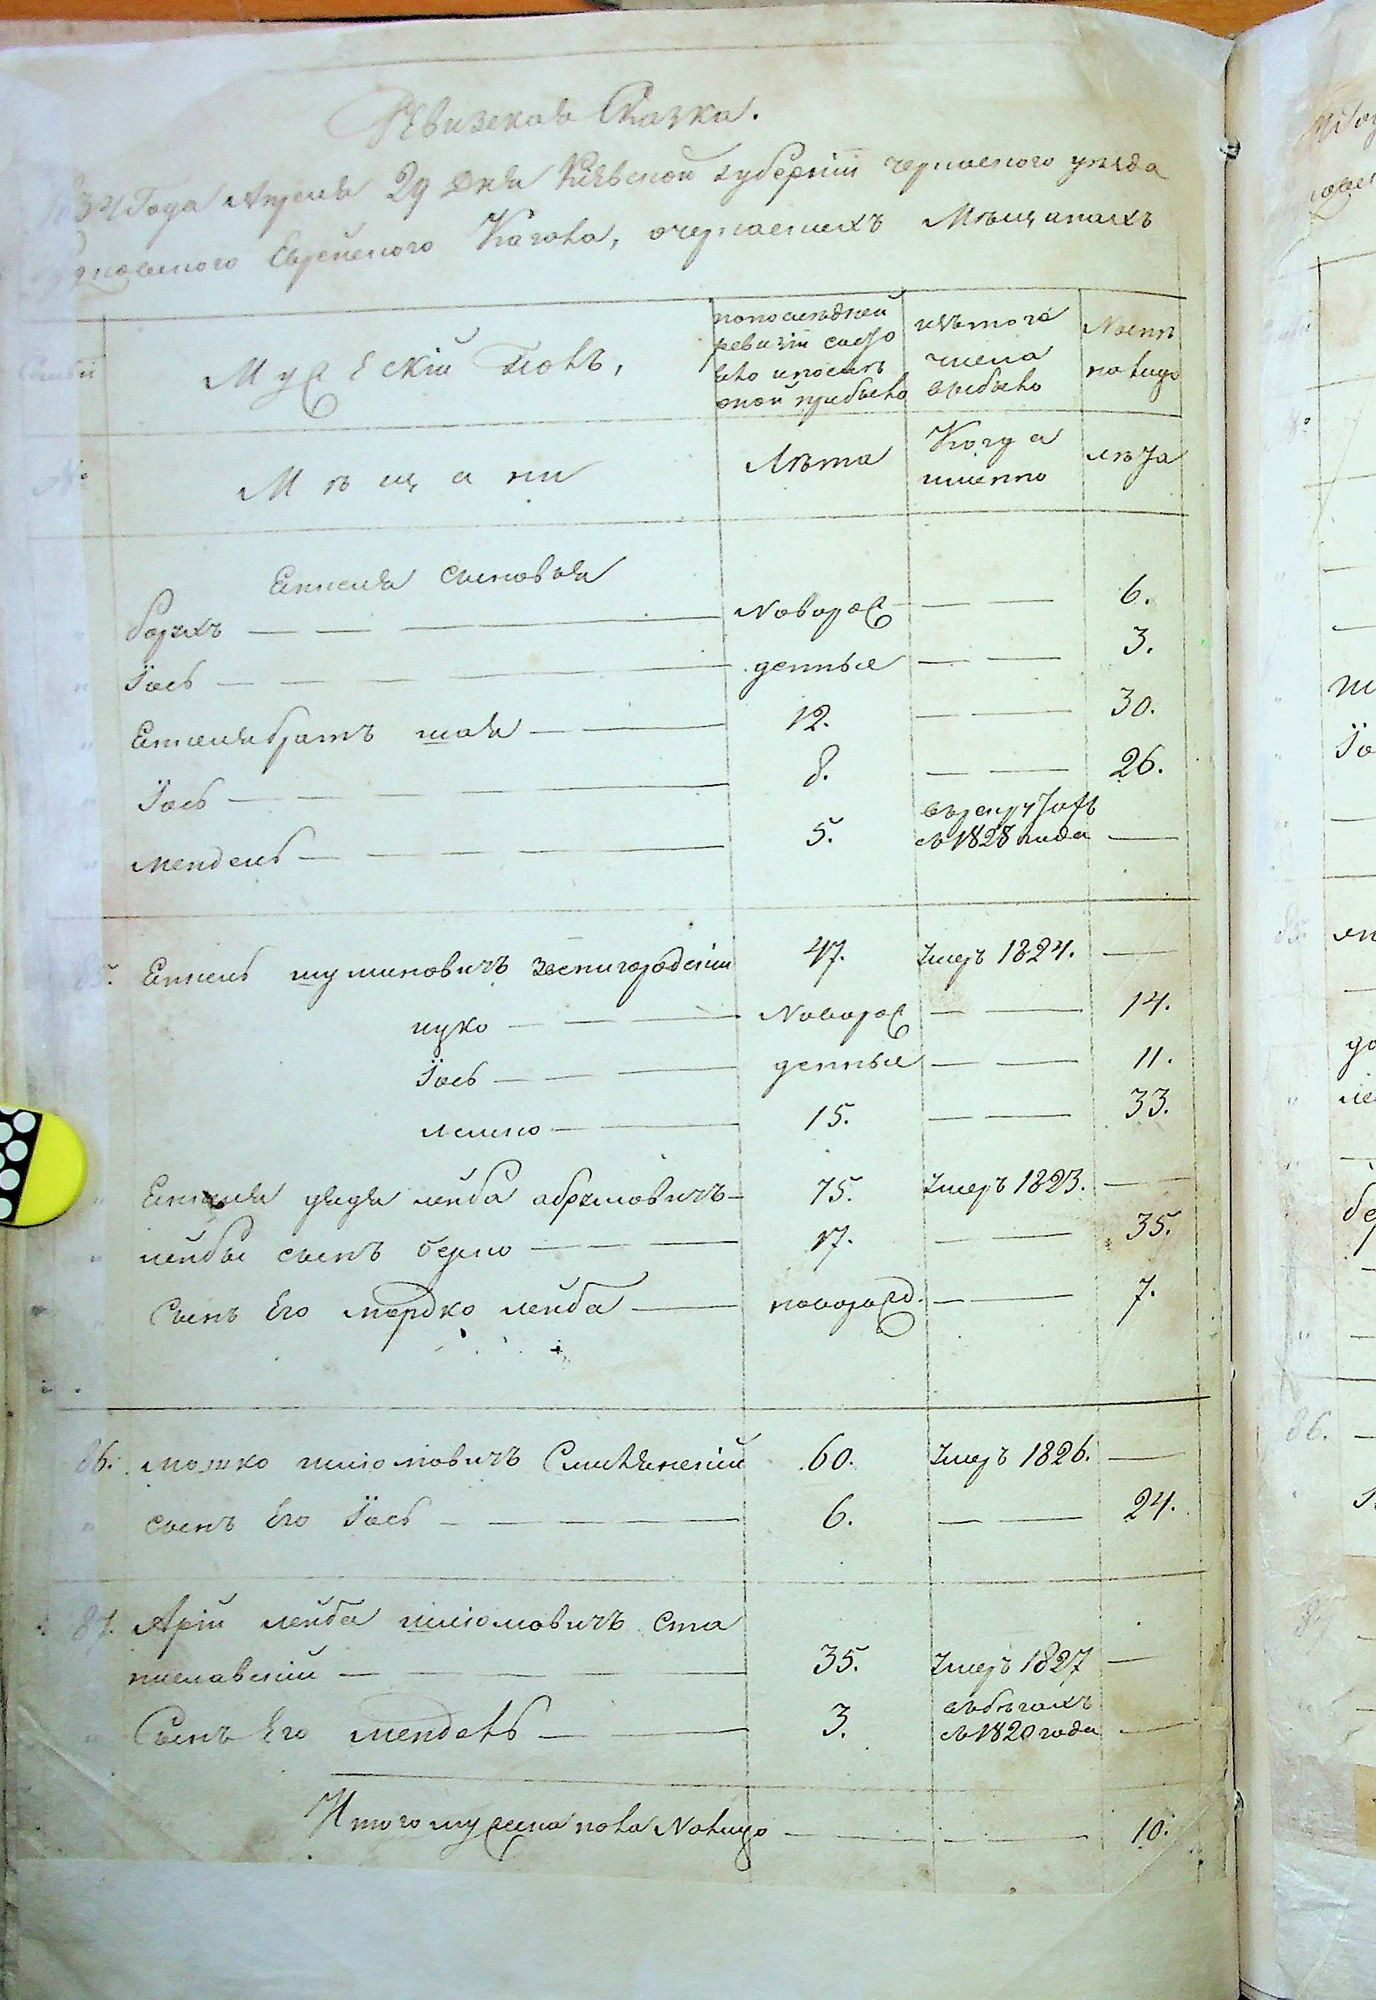 Ревизская Сказка.
34 Года Апреля 29 Дня Кіевской губерніи черкаского уезда
Еврейского Кагала, очеркаскихъ Мѣщанахъ
Мужескій полъ,
попоследней
ревизіи состо
яло и послѣ
оной прибыло
изътого
числа
выбыло
Nыне
на лицо
№
Мѣщани
Лѣта
Когда
именно
лѣта
Еткеля сыновья
борухъ — — — Новорож — — 6.
Іось — — — — денные — — 3.
Еткеля братъ шая — — 12. — — 30.
Іось — — — — 8. — — 26.
мендель — — — — 5. върекрутахъ
съ 1828 года —
85. Еткель шулимовичъ звенигородскій 47. Умеръ 1824. —
ицко — — — Новорож — — 14.
Іось — — — денные — — 11.
лемко — — 15. — — 33.
Еткеля дядя лейба абрамовичъ — 75. Умеръ 1823. —
лейбы сынъ берко — — — 17. — — 35.
Сынъ Его мордко лейба — новорожд. — — 7.
86. мошко шліомовичъ Смилянскій 60. Умеръ 1826. —
сынъ Его Іось — — — — 6. — — 24.
87. Арій лейба шліомовичъ Ста
ниславскій — — — — 35. Умеръ 1827 —
Сынъ Его мендель — — 3. въбегахъ
съ 1820 года —
Итого мужеска пола Налицо — — — 10.
86.